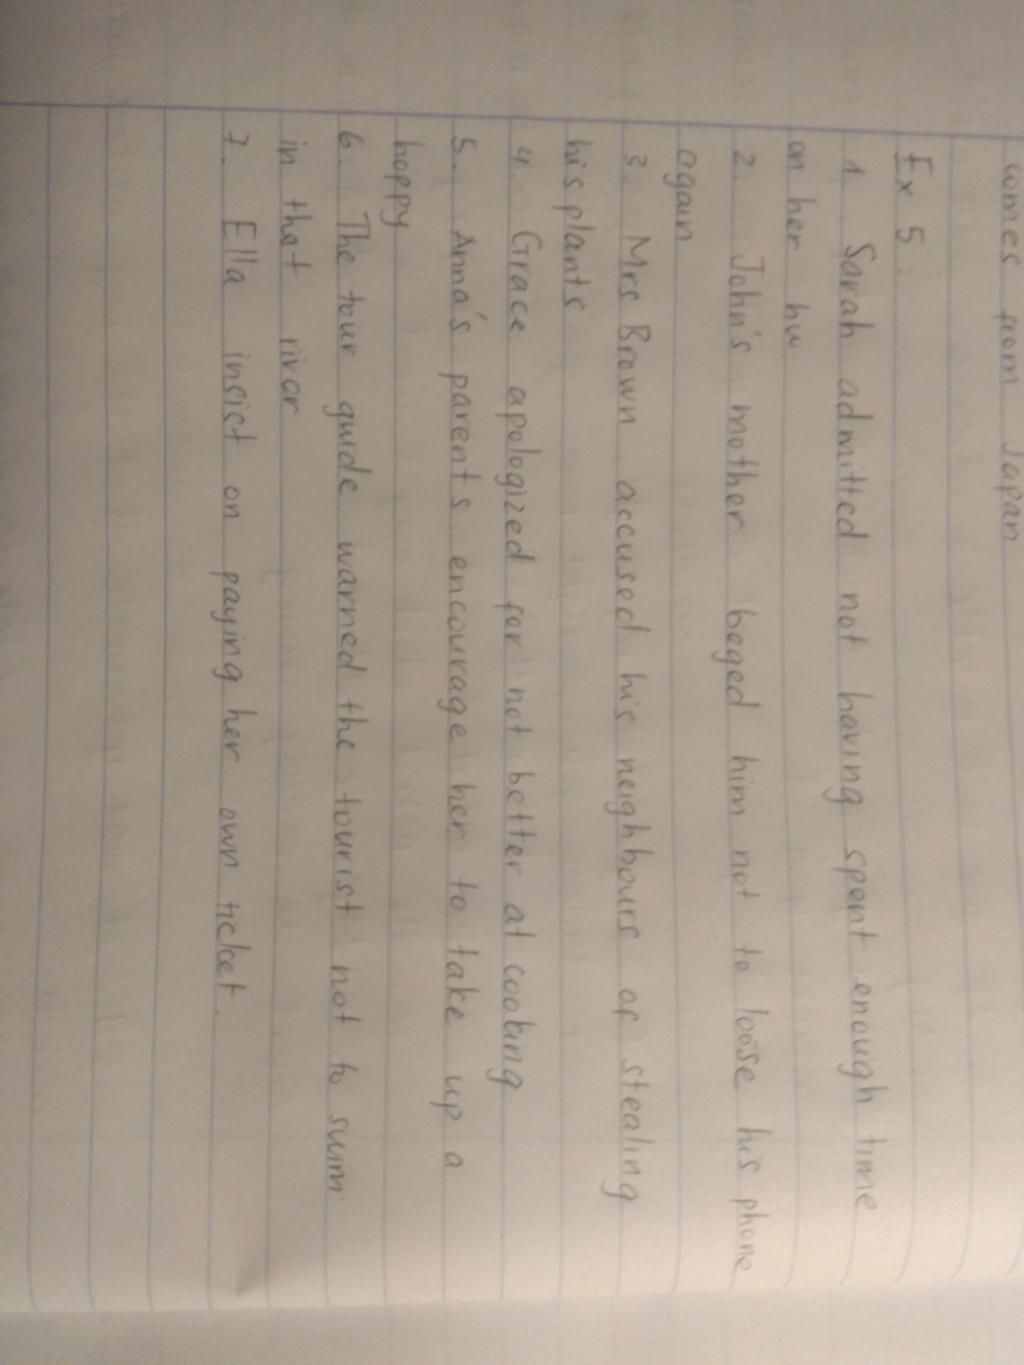 comes from Japan
Ex 5.
1. Sarah admitted not having spent enough time
on her hw
2. John's mother beged him not to loose his phone
again
3. Mrs Brown accused his neighbours of stealing
his plants
4. Grace apologized for not better at cooking
5. Anna's parents encourage her to take up a
hoppy
6. The tour guide warned the tourist not to swim
in that rivar
7. Ella insict on paying her own ticket.